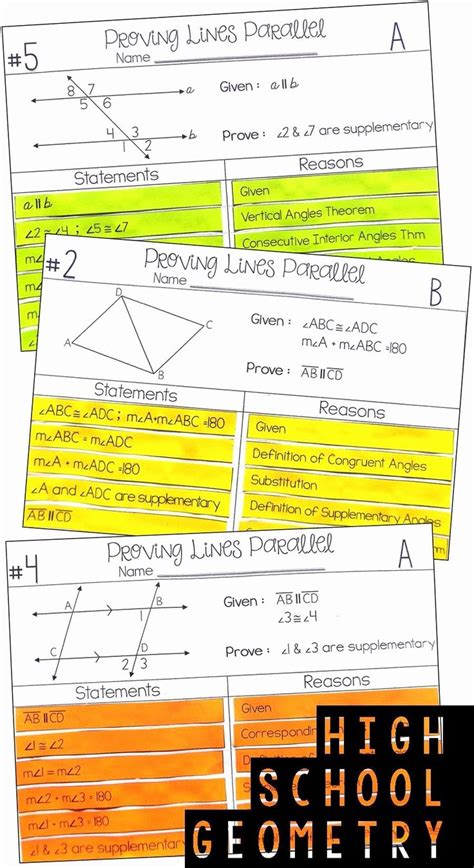 #5 Proving Lines Parallel A
Name
8 7 a
5 6
4 3 b
1 2
Given : a ∥ b
Prove : ∠2 & ∠7 are supplementary
Statements Reasons
a ∥ b Given
∠2 ≅ ∠4 ; ∠5 ≅ ∠7 Vertical Angles Theorem
m∠ Consecutive Interior Angles Thm
m∠
m∠
∠
#2 Proving Lines Parallel B
Name
D
C
A
B
Given : ∠ABC ≅ ∠ADC
m∠A + m∠ABC =180
Prove : AB ∥ CD
Statements Reasons
∠ABC ≅ ∠ADC ; m∠A+m∠ABC =180 Given
m∠ABC = m∠ADC Definition of Congruent Angles
m∠A + m∠ADC =180 Substitution
∠A and ∠ADC are supplementary Definition of Supplementary Angles
AB ∥ CD
#4 Proving Lines Parallel A
Name
A B
1
C D
2 3
Given : AB ∥ CD
∠3 ≅ ∠4
Prove : ∠1 & ∠3 are supplementary
Statements Reasons
AB ∥ CD Given
∠1 ≅ ∠2
m∠1 = m∠2
m∠2 + m∠3 =180
m∠1 + m∠3 =180
∠1 & ∠3 are supplementary
HIGH
SCHOOL
GEOMETRY